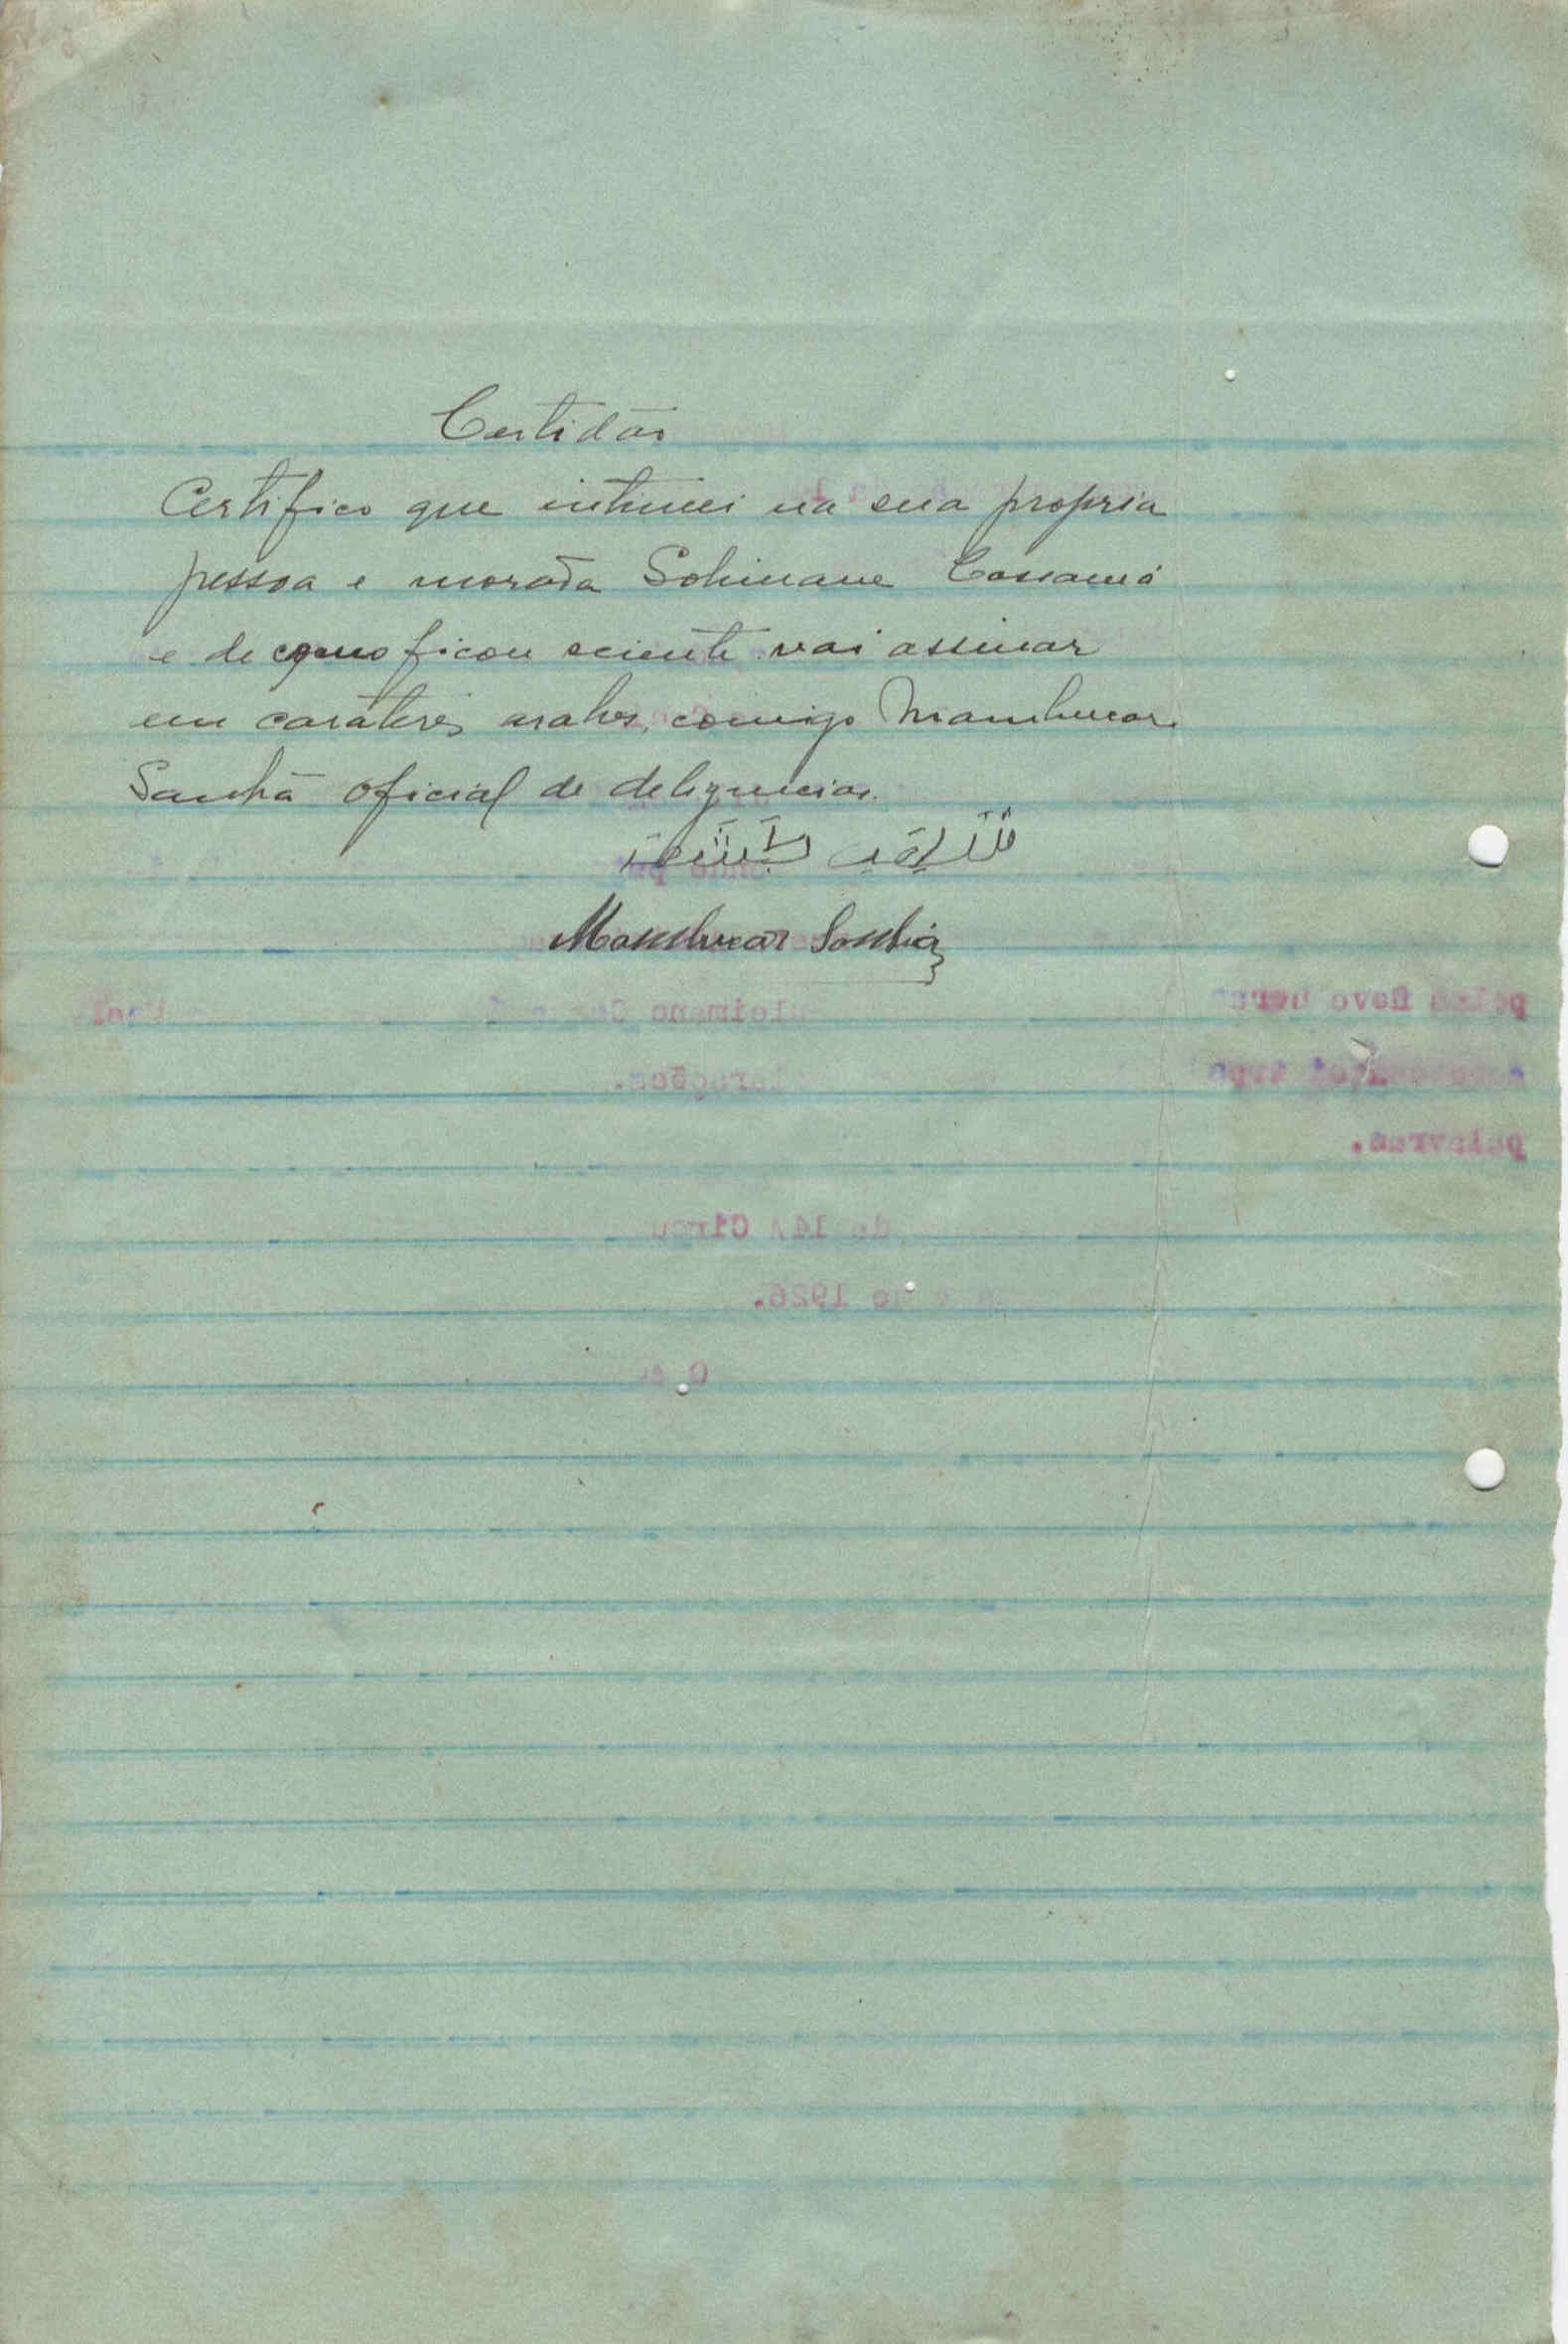 Certidão
Certifico que intimei na sua propria
pessoa e morada Solimane Cassamá
e de como ficou sciente vai assinar
em caráteres arabes, comigo Mambucar
Sanhá oficial de deligencias.
Mambucar Sanhá